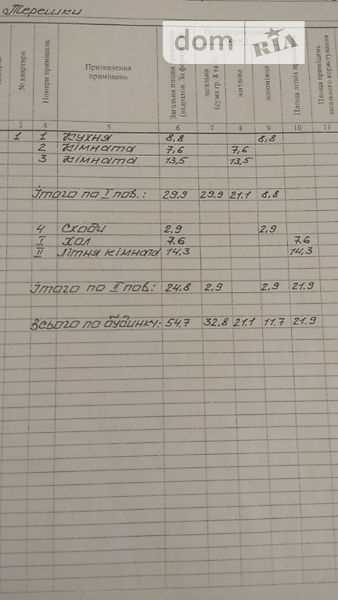 Терешки
dom RIA
№ квартири
Номери приміщень
Призначення приміщень
Загальна площа
житлова
3 4 5 6 7 8 9 10 11
1 1 Кухня 8,8 8,8
2 Кімната 7,6 7,6
3 Кімната 13,5 13,5
Ітого по I пов.: 29.9 29.9 21.1 8.8
4 Сходи 2,9 2,9
I Хол 7.6 7.6
II Літня кімната 14,3 14,3
Ітого по II пов: 24,8 2,9 2,9 21.9
Всього по будинку: 54,7 32,8 21.1 11.7 21.9